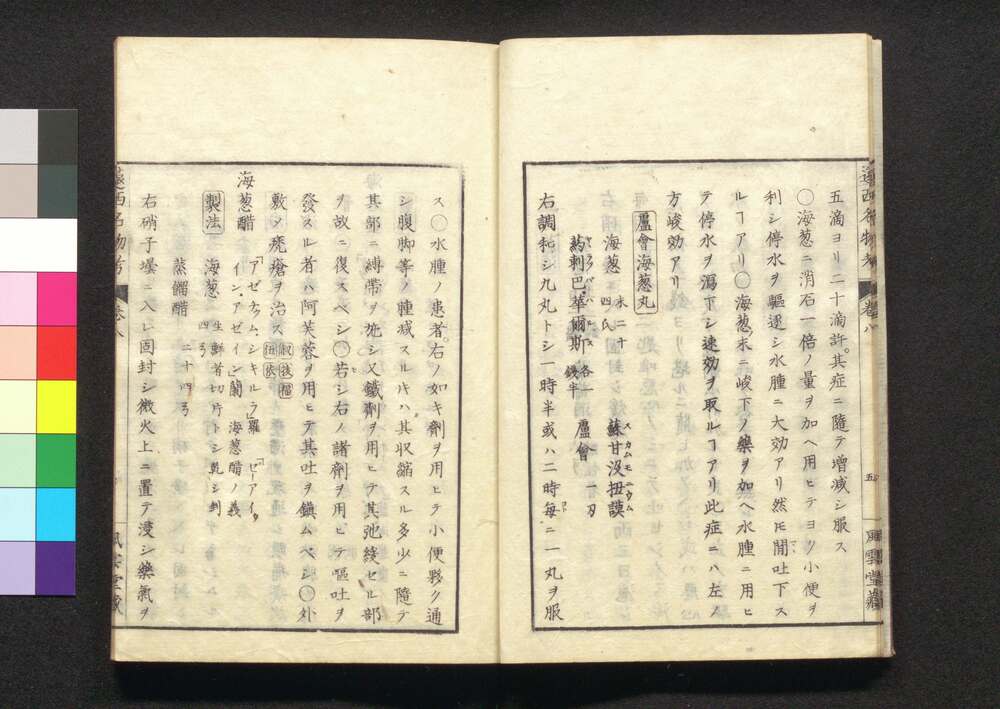 五滴ヨリ二十滴許其症ニ隨テ增減シ服ス
〇海葱ニ消石一倍ノ量ヲ加ヘ用ヒテヨク小便ヲ
利シ停水ヲ驅逐シ水腫ニ大効アリ然𪜈間吐下ス
ルヿアリ〇海葱末ニ峻下ノ藥ヲ加ヘ水腫ニ用ヒ
テ停水ヲ瀉下シ速効ヲ取ルヿアリ此症ニハ左ノ
方峻効アリ
蘆會海葱丸
海葱 末二十四氏 蘇甘没扭謨 スカムモニウム
葯刺巴華爾斯 各一錢半 蘆會 一刃
右調和シ九丸トシ一時半或ハ二時每ニ一丸ヲ服
五
風雲堂藏
遠西名物考
卷八
ス〇水腫ノ患者右ノ如キ劑ヲ用ヒテ小便夥ク通
シ腹脚等ノ腫減スル𪜈ハ其収縮スル多少ニ隨テ
其部ニ縛帶ヲ施シ又鐵劑ヲ用ヒテ其弛緩セル部
ヲ故ニ復スベシ〇若シ右ノ諸劑ヲ用ヒテ嘔吐ヲ
發スル者ハ阿芙蓉ヲ用ヒテ其吐ヲ鎭ムベシ〇外
敷メ禿瘡ヲ治ス
海葱醋 「アゼテュム、シキルラ」羅 「ゼーアイ、
イン、アゼイン」蘭 海葱醋ノ義
製法 海葱 生鮮者切片トシ乾シ剉 四弓
蒸餾醋 二十四弓
右硝子壜ニ入レ固封シ微火上ニ置テ浸シ藥氣ヲ
遠西名物考
卷八
風雲堂藏